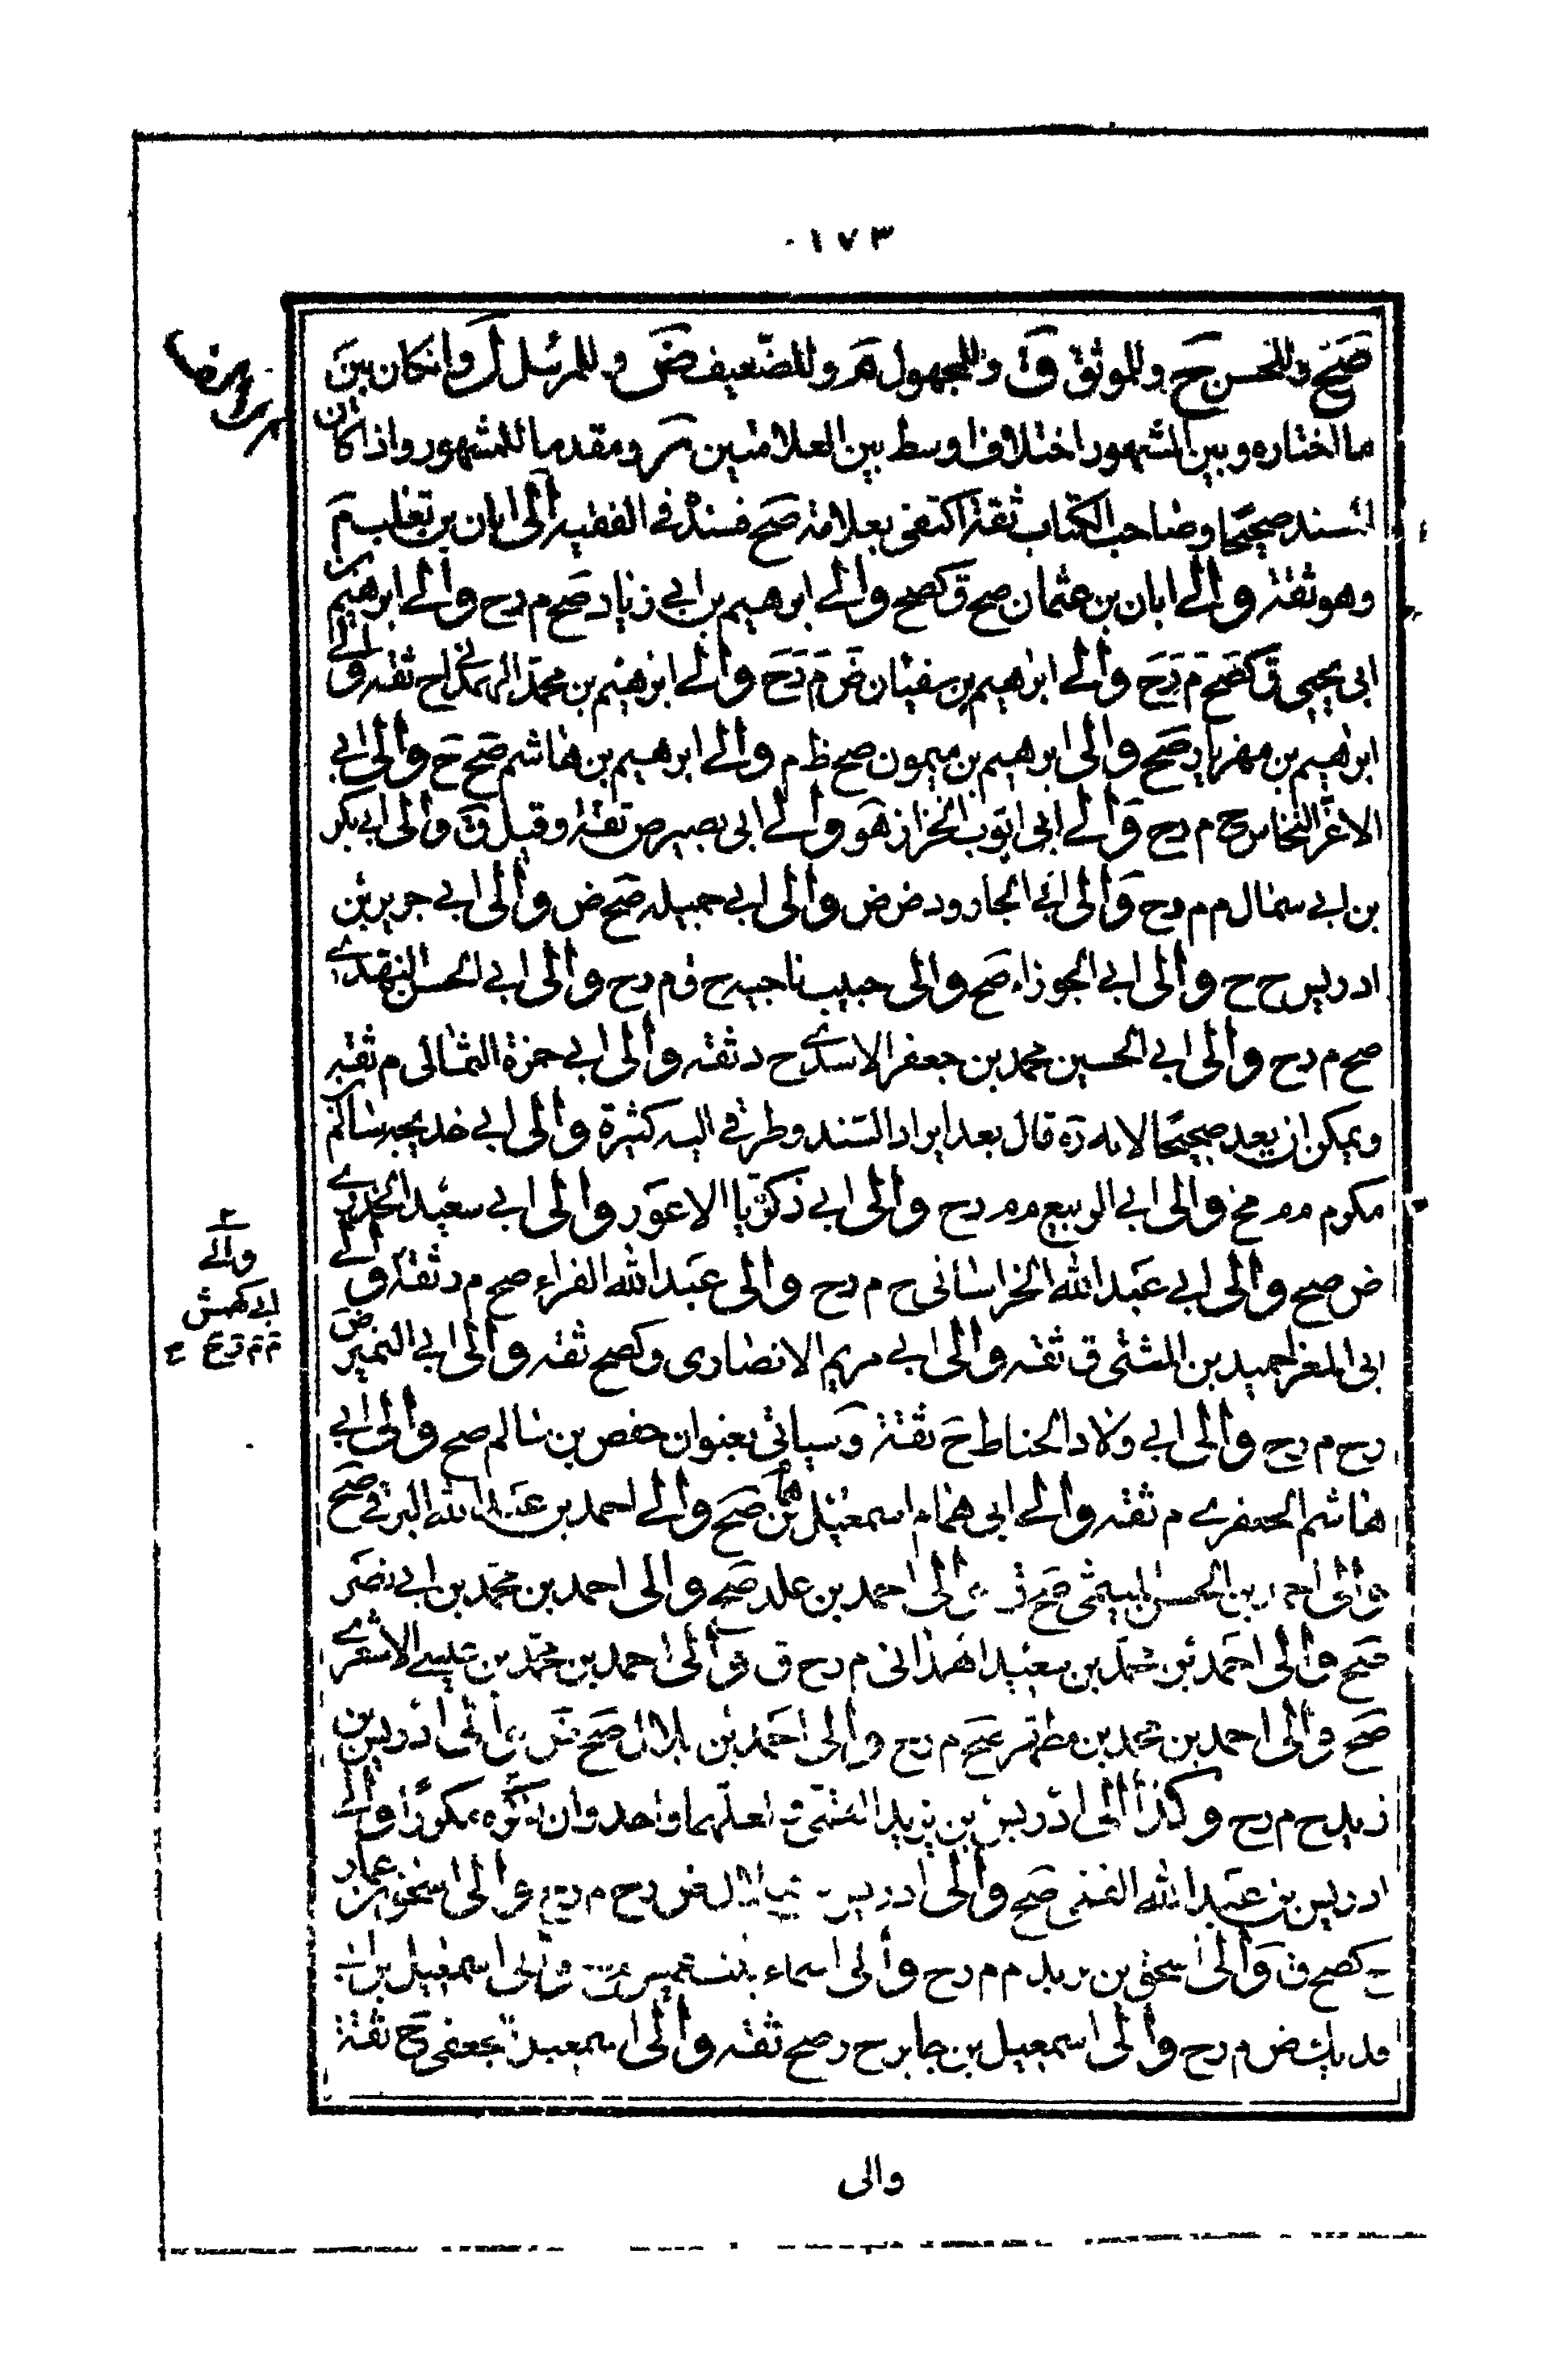 ١٧٣
صح وللحسن ح وللموثق ق وللمجهول م وللضعيف ض وللمرسل ل وان كان بين
ما اختاره وبين المشهور اختلافا وسط بين العلامتين ر ومقدما للمشهور واذا كان
السند صحيحا وصاحب الكتاب ثقة اكتفى بعلامة صح فسنده في الفقيه الى ابان بن تغلب م
وهو ثقة والى ابان بن عثمان صح ق كصح والى ابرهيم بن ابي زياد صح م رح والى ابرهيم بن
ابي يحيى ق كصح م رح والى ابرهيم بن سفيان ض م رح والى ابرهيم بن محمد الهمداني ح ثقة والى
ابرهيم بن مهزيار صح والى ابرهيم بن ميمون صح ظ م والى ابرهيم بن هاشم صح ح والى ابي
الاغر النخاس ح م رح والى ابي ايوب الخزاز هو والى ابي بصير ض ثقة وقيل ق والى ابي بكر
بن ابي سمال م م رح والى ابي الجارود ض ض والى ابي جميله صح ض والى ابي جرير بن
ادريس ح ح والى ابي الجوزاء صح والى حبيب ناجيه ح ق م رح والى ابي الحسن النهدي
صح م رح والى ابي الحسين محمد بن جعفر الاسدي ح د ثقه والى ابي حمزة الثمالى م ثقه
ويمكن ان يعد صحيحا لانه ره قال بعد ايراد السند وطرقي اليه كثيرة والى ابي خديجه سالم بن
مكرم م م مخ والى ابي الربيع م م رح والى ابي زكريا الاعور والى ابي سعيد الخدري
ض صح والى ابي عبد الله الخراسانى ح م رح والى عبد الله الفراء صح م د ثقة والى
ابي المغرا حميد بن المثنى ق ثقه والى ابي مريم الانصارى وكصح ثقه والى ابي النمير ض
رح م رح والى ابي ولاد الحناط ح ثقة وسياتي بعنوان حفص بن سالم صح والى ابي
هاشم الجعفري م ثقه والى ابي همام اسمعيل بن همام صح والى احمد بن عبد الله البرقي صح
والى احمد بن الحسن الميثمى صح ق والى احمد بن عائد صح والى احمد بن محمد بن ابي نصر
صح والى احمد بن محمد بن سعيد الهمذانى م رح ق والى احمد بن محمد بن عيسى الاشعري
صح والى احمد بن محمد بن مطهر صح م رح والى احمد بن بلال صح ض والى ادريس بن
زيد ح م رح وكذا الى ادريس بن يزيد القمى ولعلهما واحد وان ذكره مكررا والى
ادريس بن عبد الله القمى صح والى ادريس بن رح م رح والى اسحق بن عمار
كصح ق والى اسحق بن يزيد م م رح والى اسماء بنت عميس والى اسمعيل بن
فديك ض م رح والى اسمعيل بن جابر ح ر صح ثقه والى اسمعيل بن جعفر ح ثقة
والى
والى
ابي كهمش
م م رح